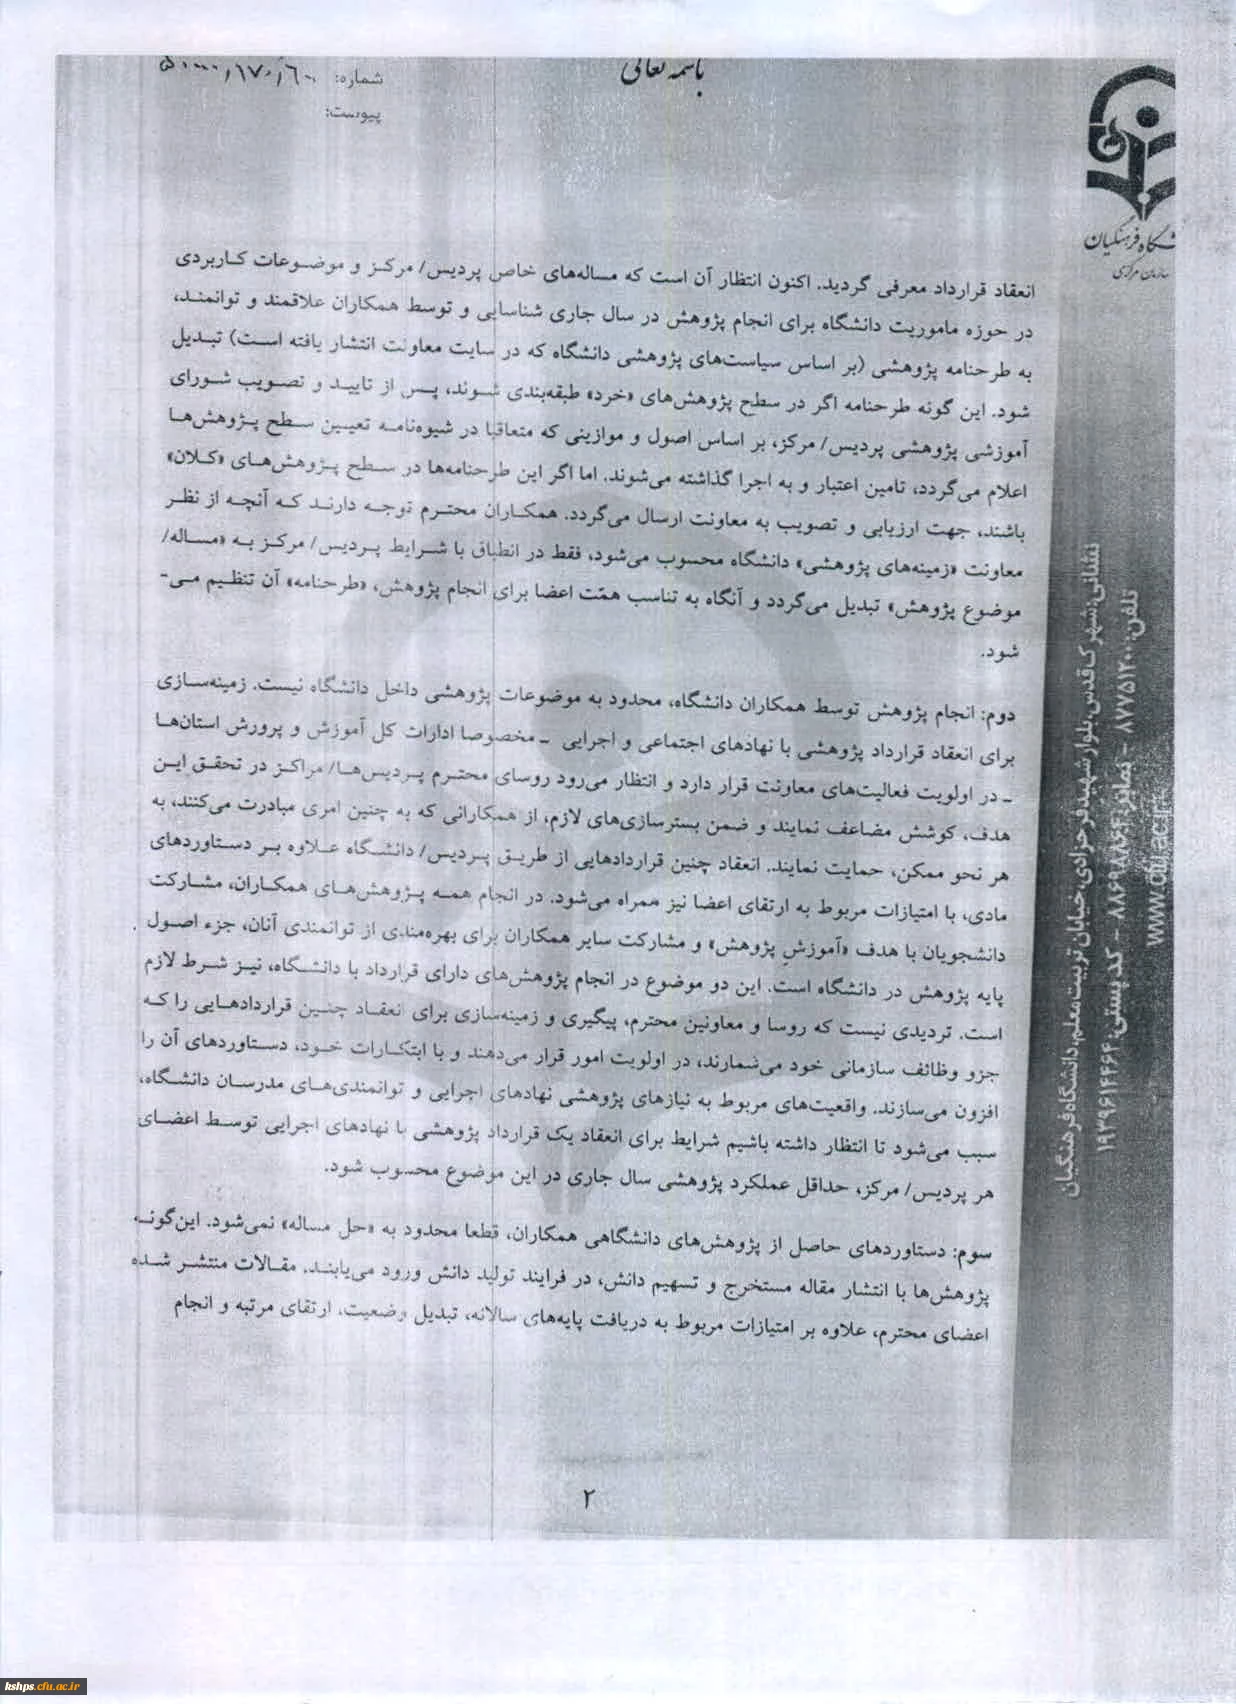 باسمه تعالی
شماره: ۵۰۰۰۰/۱۷۰/۶۰۰
پیوست:
دانشگاه فرهنگیان
سازمان مرکزی
انعقاد قرارداد معرفی گردید. اکنون انتظار آن است که مساله‌های خاص پردیس/ مرکز و موضوعات کاربردی
در حوزه ماموریت دانشگاه برای انجام پژوهش در سال جاری شناسایی و توسط همکاران علاقمند و توانمند،
به طرحنامه پژوهشی (بر اساس سیاست‌های پژوهشی دانشگاه که در سایت معاونت انتشار یافته است) تبدیل
شود. این گونه طرحنامه اگر در سطح پژوهش‌های «خرد» طبقه‌بندی شوند، پس از تایید و تصویب شورای
آموزشی پژوهشی پردیس/ مرکز، بر اساس اصول و موازینی که متعاقبا در شیوه‌نامه تعیین سطح پژوهش‌ها
اعلام می‌گردد، تامین اعتبار و به اجرا گذاشته می‌شوند. اما اگر این طرحنامه‌ها در سطح پژوهش‌های «کلان»
باشند، جهت ارزیابی و تصویب به معاونت ارسال می‌گردد. همکاران محترم توجه دارند که آنچه از نظر
معاونت «زمینه‌های پژوهشی» دانشگاه محسوب می‌شود، فقط در انطباق با شرایط پردیس/ مرکز به «مساله/
موضوع پژوهش» تبدیل می‌گردد و آنگاه به تناسب همّت اعضا برای انجام پژوهش، «طرحنامه» آن تنظیم می-
شود.
دوم: انجام پژوهش توسط همکاران دانشگاه، محدود به موضوعات پژوهشی داخل دانشگاه نیست. زمینه‌سازی
برای انعقاد قرارداد پژوهشی با نهادهای اجتماعی و اجرایی ـ مخصوصا ادارات کل آموزش و پرورش استان‌ها
ـ در اولویت فعالیت‌های معاونت قرار دارد و انتظار می‌رود روسای محترم پردیس‌ها/ مراکز در تحقق این
هدف، کوشش مضاعف نمایند و ضمن بسترسازی‌های لازم، از همکارانی که به چنین امری مبادرت می‌کنند، به
هر نحو ممکن، حمایت نمایند. انعقاد چنین قراردادهایی از طریق پردیس/ دانشگاه علاوه بر دستاوردهای
مادی، با امتیازات مربوط به ارتقای اعضا نیز همراه می‌شود. در انجام همه پژوهش‌های همکاران، مشارکت
دانشجویان با هدف «آموزشِ پژوهش» و مشارکت سایر همکاران برای بهره‌مندی از توانمندی آنان، جزء اصول
پایه پژوهش در دانشگاه است. این دو موضوع در انجام پژوهش‌های دارای قرارداد با دانشگاه، نیز شرط لازم
است. تردیدی نیست که روسا و معاونین محترم، پیگیری و زمینه‌سازی برای انعقاد چنین قراردادهایی را که
جزو وظائف سازمانی خود می‌شمارند، در اولویت امور قرار می‌دهند و با ابتکارات خود، دستاوردهای آن را
افزون می‌سازند. واقعیت‌های مربوط به نیازهای پژوهشی نهادهای اجرایی و توانمندی‌های مدرسان دانشگاه،
سبب می‌شود تا انتظار داشته باشیم شرایط برای انعقاد یک قرارداد پژوهشی با نهادهای اجرایی توسط اعضای
هر پردیس/ مرکز، حداقل عملکرد پژوهشی سال جاری در این موضوع محسوب شود.
سوم: دستاوردهای حاصل از پژوهش‌های دانشگاهی همکاران، قطعا محدود به «حل مساله» نمی‌شود. این‌گونه
پژوهش‌ها با انتشار مقاله مستخرج و تسهیم دانش، در فرایند تولید دانش ورود می‌یابند. مقالات منتشر شده
اعضای محترم، علاوه بر امتیازات مربوط به دریافت پایه‌های سالانه، تبدیل وضعیت، ارتقای مرتبه و انجام
۲
نشانی: شهرک قدس، بلوار شهید فرحزادی، خیابان تربیت معلم، دانشگاه فرهنگیان
تلفن: ۸۷۷۵۱۲۰۰ - نمابر: ۸۸۶۹۸۸۶۴ - کد پستی: ۱۹۳۹۶۱۴۴۶۴
www.cfu.ac.ir
kshps.cfu.ac.ir